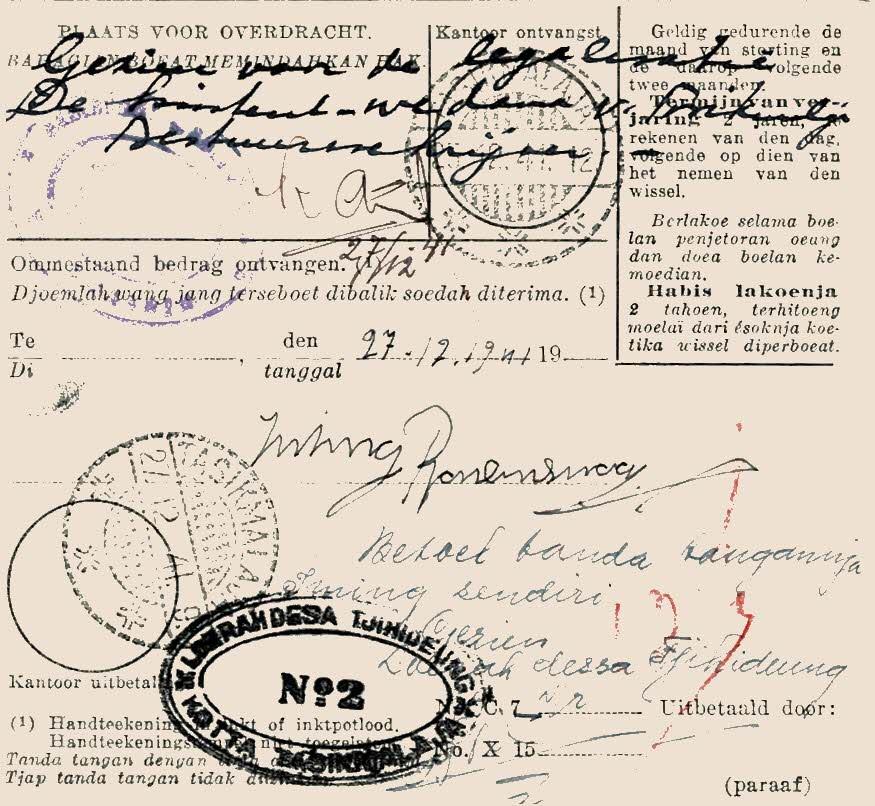 PLAATS VOOR OVERDRACHT.
BAHAGIAN BOEAT MEMINDAHKAN HAK.
Gezien voor de legalisatie
De Assistent-wedana v.
Bestuursschrijver
Kantoor ontvangst
Geldig gedurende de
maand van storting en
de daarop volgende
twee maanden.
Termijn van ver-
jaring 2 jaren, te
rekenen van den dag,
volgende op dien van
het nemen van den
wissel.
Berlakoe selama boe-
lan penjetoran oeang
dan doea boelan ke-
moedian.
Habis lakoenja
2 tahoen, terhitoeng
moelaï dari ésoknja koe-
tika wissel diperboeat.
27/12 41
Ommestaand bedrag ontvangen. (1)
Djoemlah wang jang terseboet dibalik soedah diterima. (1)
Te
Di
, den
tanggal
27.12.1941 19
TASIKMALAJA
27.12.41
Betoel tanda tangannja
Iming sendiri
Gezien
Loerah dessa Tjihideung
LOERAH DESA TJIHIDEUNG
No 2
KOTTA TASIKMALAJA
Kantoor uitbetal
No. C 7
Uitbetaald door:
No. X 15
(1) Handteekening inkt of inktpotlood.
Handteekeningstempel niet toegelaten.
Tanda tangan dengan
Tjap tanda tangan tidak
(paraaf)